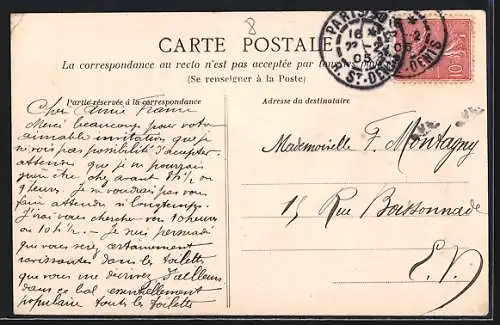 8
CARTE POSTALE
La correspondance au recto n'est pas acceptée par tous les pays
(Se renseigner à la Poste)
PARIS
ST-DENIS
Partie réservée à la correspondance
Cher Amie France
Merci beaucoup pour votre
aimable invitation que je
ne vois pas possibilité d'accepter
attendu que je ne pourrais
guère être chez avant 8h ½ ou
9 heures. Je ne voudrais pas vous
faire attendre si longtemps.
J'irai vous chercher vers 10 heures
ou 10h ½. Je suis persuadé
que vous serez certainement
ravissantes dans les toilettes
que vous me décrivez d'ailleurs
dans ce bal essentiellement
populaire toutes les toilettes
Adresse du destinataire
Mademoiselle F. Montagny
15 Rue Boissonnade
E.V.